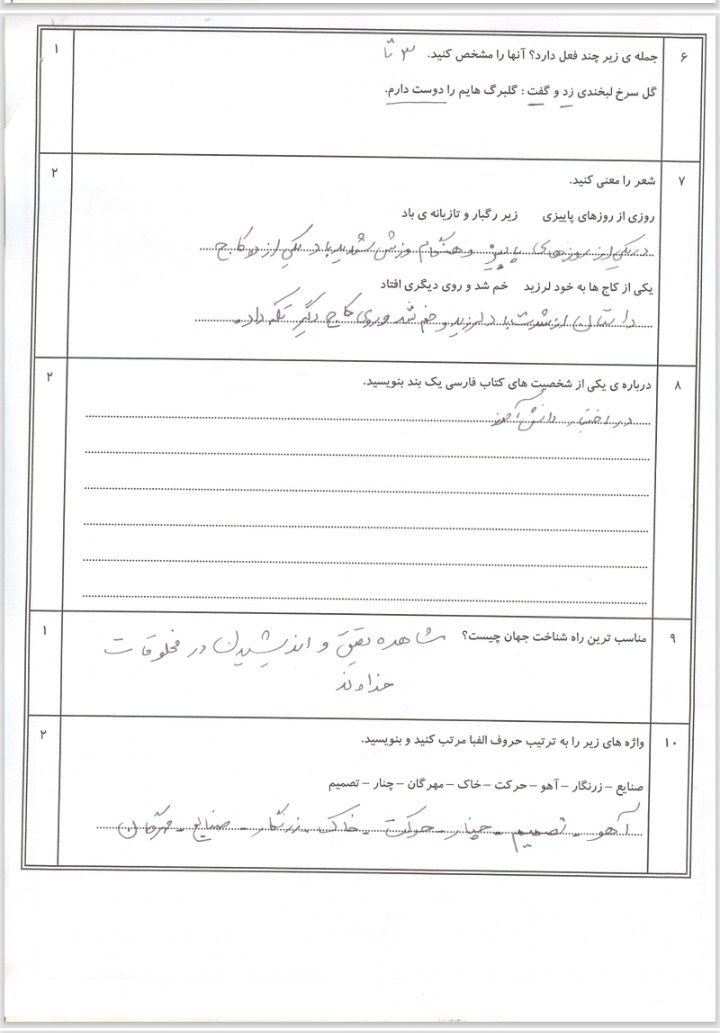 ۶ جمله ی زیر چند فعل دارد؟ آنها را مشخص کنید. ۳ تا ۱
گل سرخ لبخندی زد و گفت : گلبرگ هایم را دوست دارم.
۷ شعر را معنی کنید. ۲
روزی از روزهای پاییزی زیر رگبار و تازیانه ی باد
در یکی از روزهای پاییز و هنگام وزش شدید باد یکی از دو کاج
یکی از کاج ها به خود لرزید خم شد و روی دیگری افتاد
داستان از شدت باد لرزید و خم شد و روی کاج دیگر تکیه داد.
۸ درباره ی یکی از شخصیت های کتاب فارسی یک بند بنویسید. ۲
در اختیار دانش آموز
۹ مناسب ترین راه شناخت جهان چیست؟ مشاهده دقیق و اندیشیدن در مخلوقات ۱
خداوند
۱۰ واژه های زیر را به ترتیب حروف الفبا مرتب کنید و بنویسید. ۲
صنایع – زرنگار – آهو – حرکت – خاک – مهرگان – چنار – تصمیم
آهو - تصمیم - چنار - حرکت - خاک - زرنگار - صنایع - مهرگان